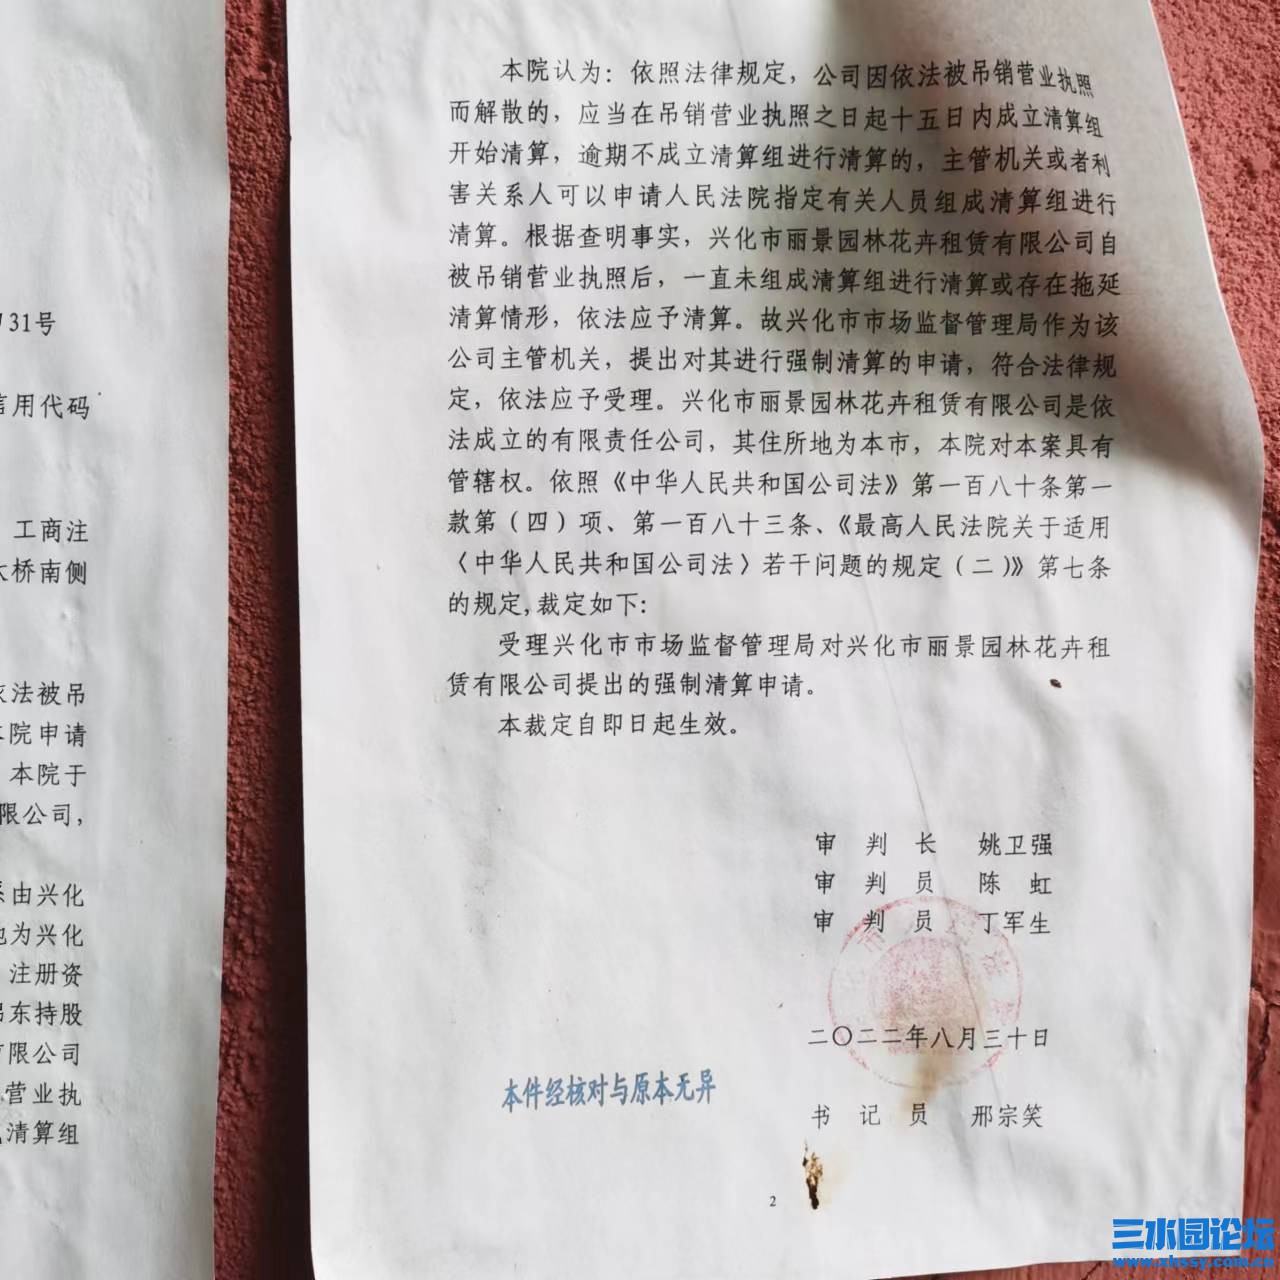 31号
信用代码
工商注
大桥南侧
依法被吊
本院申请
本院于
限公司,
系由兴化
地为兴化
注册资
东持股
有限公司
营业执
清算组
本院认为：依照法律规定，公司因依法被吊销营业执照
而解散的，应当在吊销营业执照之日起十五日内成立清算组
开始清算，逾期不成立清算组进行清算的，主管机关或者利
害关系人可以申请人民法院指定有关人员组成清算组进行
清算。根据查明事实，兴化市丽景园林花卉租赁有限公司自
被吊销营业执照后，一直未组成清算组进行清算或存在拖延
清算情形，依法应予清算。故兴化市市场监督管理局作为该
公司主管机关，提出对其进行强制清算的申请，符合法律规
定，依法应予受理。兴化市丽景园林花卉租赁有限公司是依
法成立的有限责任公司，其住所地为本市，本院对本案具有
管辖权。依照《中华人民共和国公司法》第一百八十条第一
款第（四）项、第一百八十三条、《最高人民法院关于适用
〈中华人民共和国公司法〉若干问题的规定（二）》第七条
的规定,裁定如下：
受理兴化市市场监督管理局对兴化市丽景园林花卉租
赁有限公司提出的强制清算申请。
本裁定自即日起生效。
审 判 长 姚卫强
审 判 员 陈 虹
审 判 员 丁军生
二〇二二年八月三十日
本件经核对与原本无异
书 记 员 邢宗笑
2
三水园论坛
www.xhssy.com.cn